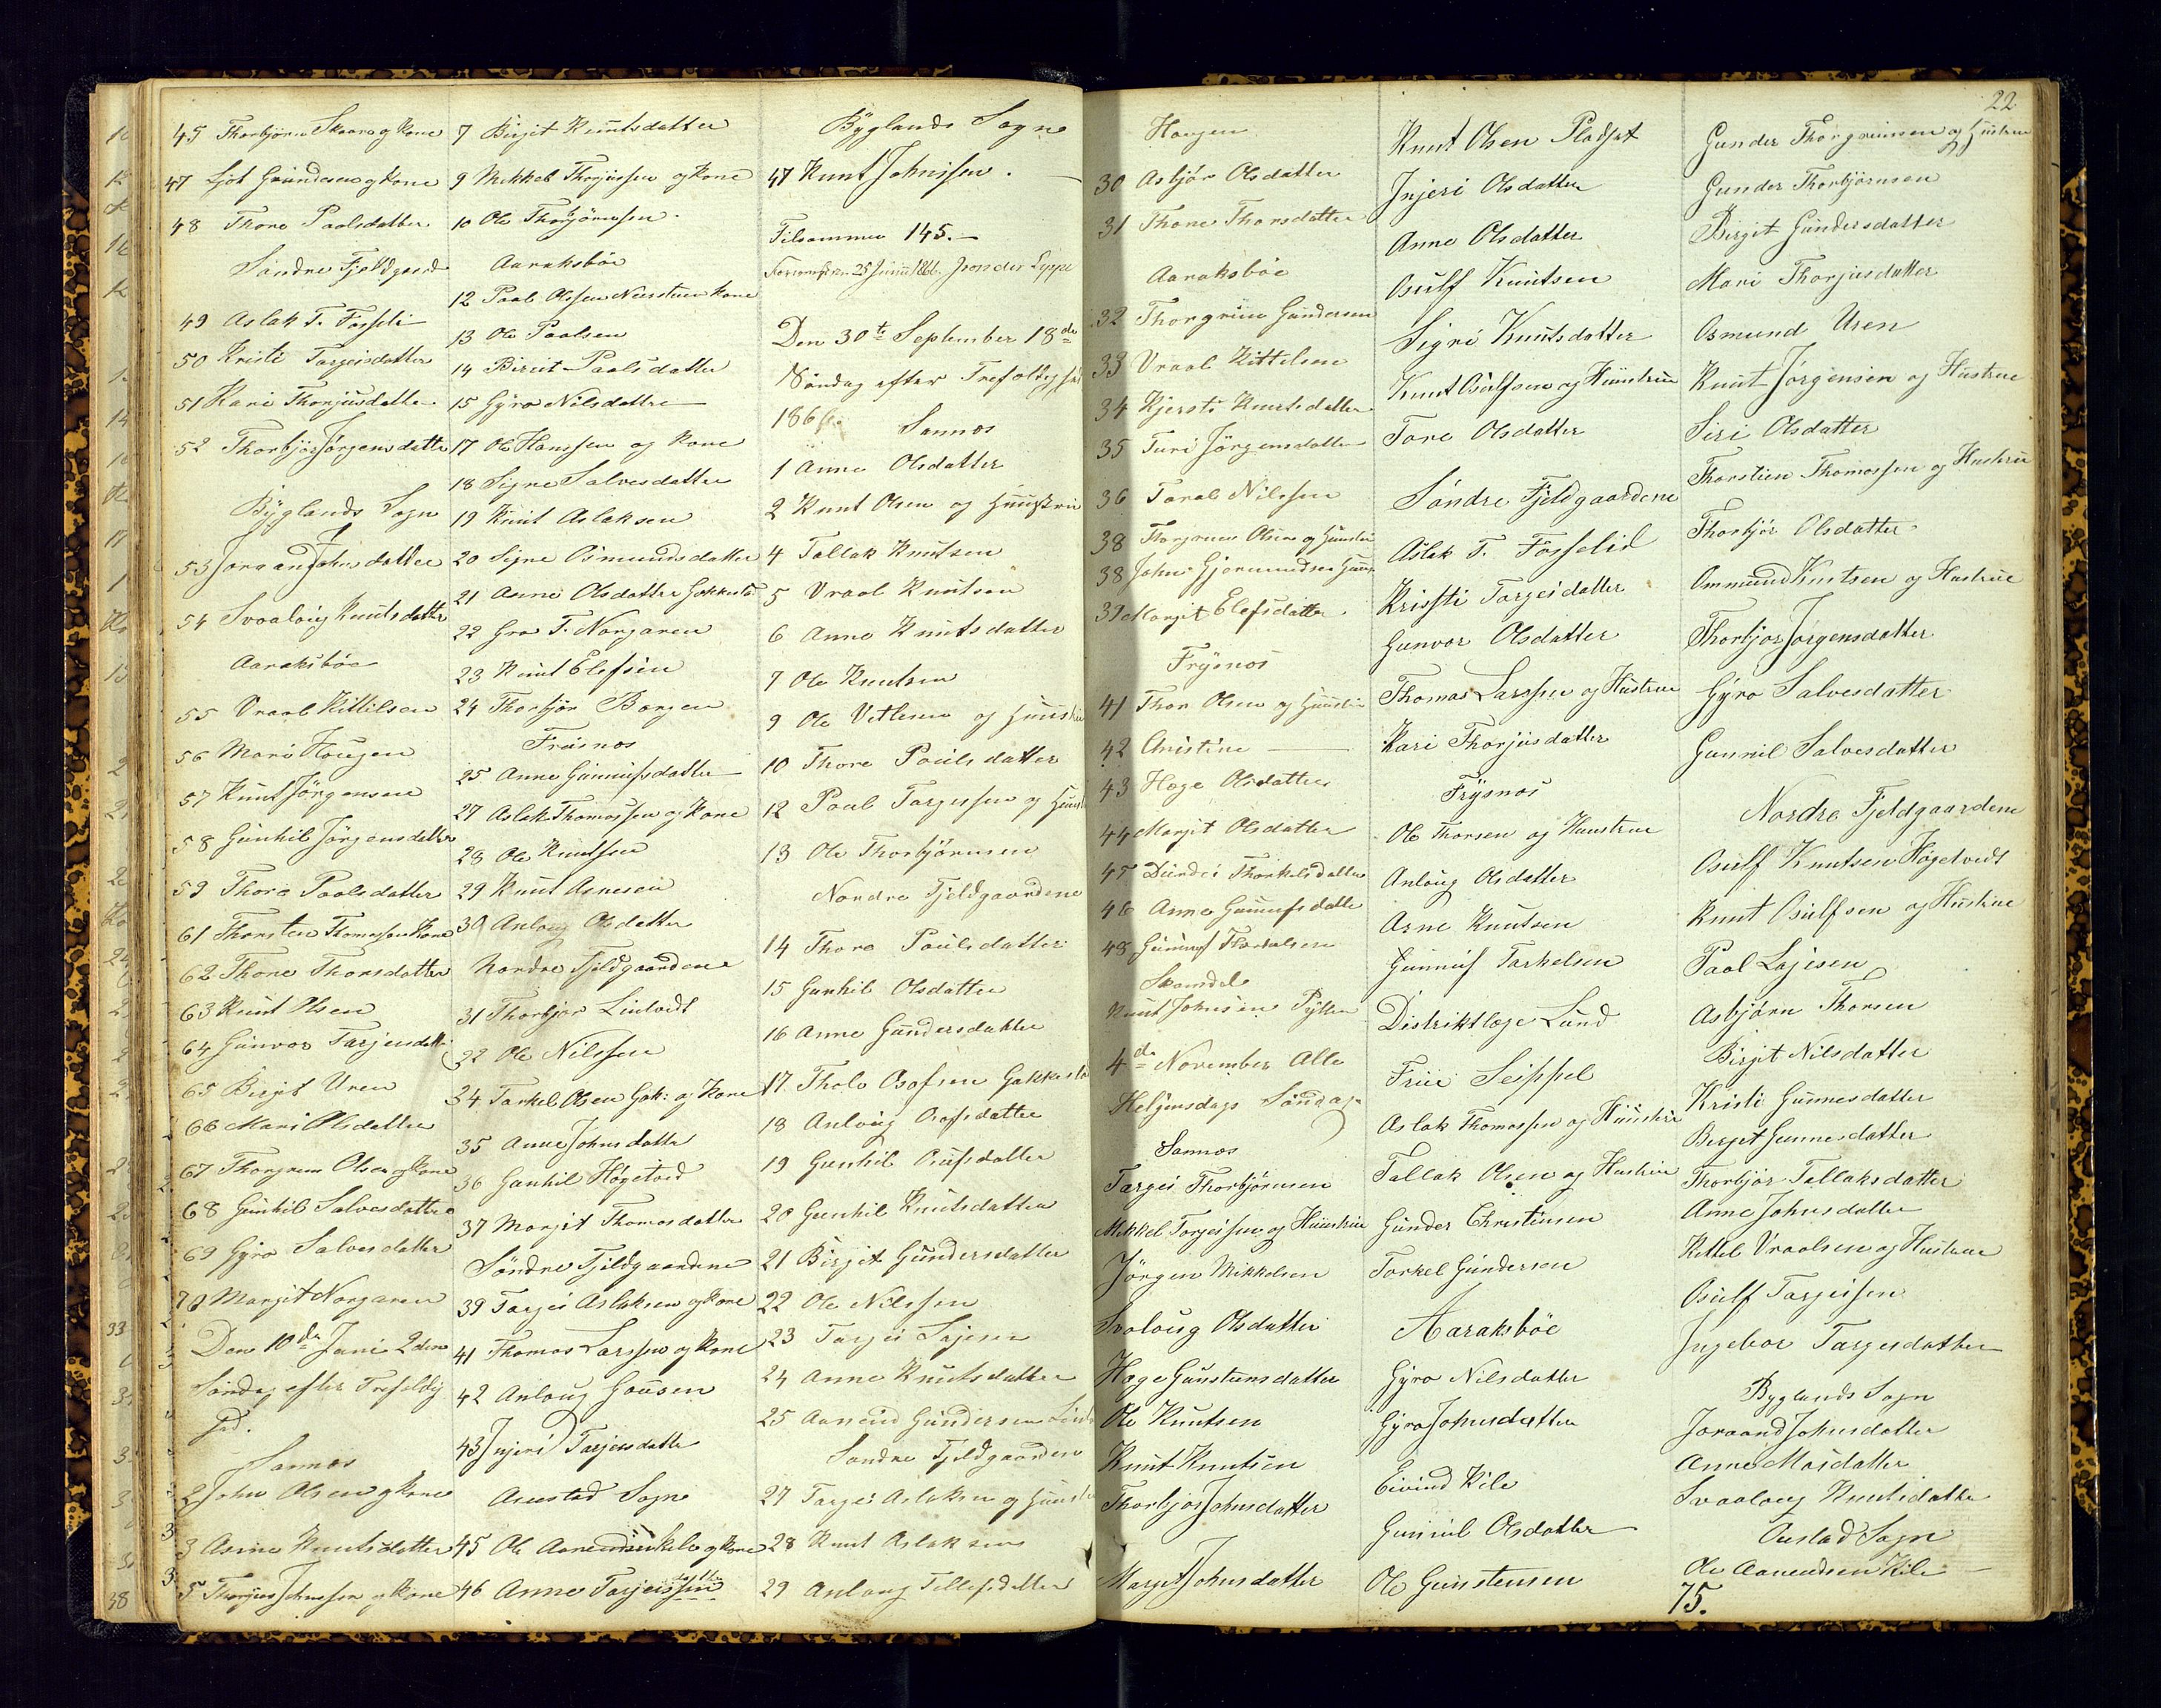 45 Thorbjørn Skaare og Kone
47 Ljot Gundersen og Kone
48 Thore Paalsdatter
Søndre Fjeldgaard
49 Aslak T. Fosseli
50 Kristi Targeisdatter
51 Kari Thorjusdatter
52 Thorbjør Jørgensdatter
Byglands Sogn
53 Joraand Johnsdatter
54 Svaaloug Knutsdatter
Aaraksbøe
55 Vraal Kittilsen
56 Mari Hougen
57 Knut Jørgensen
58 Gunhil Jørgensdatter
59 Thore Paalsdatter
61 Thorsten Thomassen Kone
62 Thone Thorsdatter
63 Knut Olsen
64 Gunvor Tarjeisdatter
65 Birgit Uren
66 Mari Olsdatter
67 Thorgrim Olsen og Kone
68 Gunhil Salvesdatter
69 Gyro Salvesdatter
70 Margit Norgaren
Den 10de Juni 2den
Søndag efter Trefoldig
hed.
Sannes
2 John Olsen og Kone
3 Anne Knutsdatter
5 Thorjus Johnssen og Kone
7 Birgit Knutsdatter
9 Mikkel Thorjussen og Kone
10 Ole Thorbjørnssen
Aaraksbøe
12 Paal Olssen Neerstuen Kone
13 Ole Paalsen
14 Birgit Paalsdatter
15 Gyro Nilsdatter
17 Ole Hanssen og Kone
18 Signe Salvesdatter
19 Knut Aslaksen
20 Signe Osmundsdatter
21 Anne Olsdatter Gakkestad
22 Gro T. Norgaren
23 Knut Elefsen
24 Thorbjør Borgen
Frøisnes
25 Anne Gunnufsdatter
27 Aslak Thomassen og Kone
28 Ole Knutssen
29 Knut Arnesen
30 Anloug Olsdatter
Nordre Fjeldgaardene
31 Thorbjør Lintvedt
32 Ole Nilssen
34 Tarkel Olsen Gak: og Kone
35 Anne Johnsdatter
36 Gunhil Høgetved
37 Margit Thomasdatter
Søndre Fjeldgaardene
39 Targei Aslaksen og Kone
41 Thomas Larssen og Kone
42 Anloug Housen
43 Injeri Tarjeisdatter
Austad Sogn
45 Ole Aanendsen Kile og Kone
46 Anne Tarjeisdatter
Byglands Sogn
47 Knut Johnssen.
Tilsammen 145.
Den 30te September 18de
Søndag efter Trefoldighed
1866.
Sannes
1 Anne Olsdatter
2 Knut Olsen og Huustru
4 Tallak Knutsen
5 Vraal Knutsen
6 Anne Knutsdatter
7 Ole Knutsen
9 Ole Vetlesen og Huustru
10 Thore Poulsdatter
12 Poul Targessen og Huust
13 Ole Thorbjørnsen
Nordre Fjeldgaardene
14 Thore Poulsdatter
15 Gunhil Olsdatter
16 Anne Gundersdatter
17 Thole Osofsen Gakkesta
18 Anloug Osofsdatter
19 Gunhil Osufsdatter
20 Gunhil Knutsdatter
21 Birgit Gundersdatter
22 Ole Nilssen
23 Targei Lajesen
24 Anne Knutsdatter
25 Aanund Gundersen Lind
Søndre Fjeldgaarden
27 Targei Aslaksen og Huustru
28 Knut Aslaksen
29 Anloug Tellefsdatter
22
Hougen
30 Asbjør Olsdatter
31 Thone Thorsdatter
Aaraksbøe
32 Thorgrim Gundersen
33 Vraal Kittelsen
34 Kjersti Knutsdatter
35 Turi Jørgensdatter
36 Taral Nilssen
38 Thorgrim Olsen og Huustru
38 John Gjermundsen Huus
39 Margit Elefsdatter
Frøsnes
41 Thor Olsen og Huustru
42 Christine
43 Hæge Olsdatter
44 Margit Olsdatter
45 Durdei Thorkelsdatter
46 Anne Gunnufsdatter
48 Gunnuf Thorkelsen
Skomdal
Knut Johnsen Pytten
4de November Alle
Helgensdags Søndag
Sannes
Targei Thorbjørnsen
Mikkel Torgeissen og Huustrue
Jørgen Mikkelsen
Svaloug Olsdatter
Hæge Gunstensdatter
Ole Knutsen
Knut Knutsen
Thorbjør Johnsdatter
Margit Johnsdatter
Knut Olsen Pladset
Injeri Olsdatter
Anne Olsdatter
Osulf Knutsen
Sigri Knutsdatter
Knut Osulfsen og Huustrue
Tore Olsdatter
Søndre Fjeldgaardene
Aslak T. Fosselid
Krissti Targeidatter
Gunvor Olsdatter
Thomas Larssen og Hustrue
Kari Thorjusdatter
Frysnes
Ole Thorsen og Huustrue
Anloug Olsdatter
Arne Knutsen
Gunnuf Tarkelsen
Distriktlæge Lund
Frue Seippel
Aslak Thomassen og Huustru
Tallak Olsen og Hustrue
Gunder Christensen
Torkel Gundersen
Aaraksbøe
Gyro Nilsdatter
Gyro Johnsdatter
Eivind Kile
Gunnil Olsdatter
Ole Gunstensen
Gunder Thorgrimsen og Hustrue
Gunder Thorbjørnsen
Birgit Gundersdatter
Mari Thorjusdatter
Osmund Uren
Knut Jørgensen og Hustrue
Siri Olsdatter
Thorstein Thomassen og Hustrue
Thorbjør Olsdatter
Ommund Knutsen og Hustrue
Thorbjør Jørgensdatter
Gyro Salvesdatter
Gunnil Salvesdatter
Nordre Fjeldgaardene
Osulf Knutsen Høgetvedt
Knut Osulfsen og Hustrue
Paal Lajesen
Asbjørn Thorsen
Birgit Nilsdatter
Kristi Gunnesdatter
Birgit Gunnesdatter
Thorbjør Tallaksdatter
Anne Johnsdatter
Kittel Vraalsen og Hustrue
Osulf Targeisen
Ingebor Targesdatter
Byglands Sogn
Joraand Johnsdatter
Anne Moisdatter
Svaaloug Knutsdatter
Austad Sogn
Ole Aanendsen Kile
75.